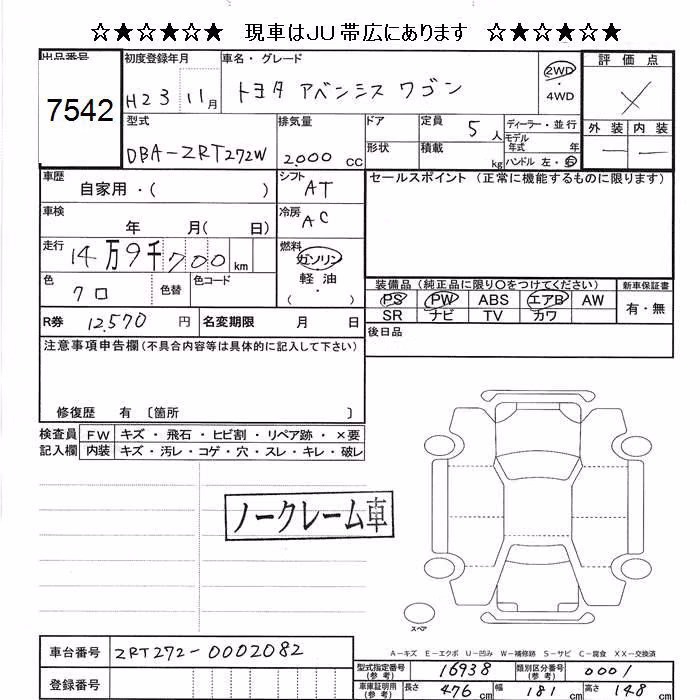 ☆★☆★☆★☆ 現車はJU帯広にあります ☆★☆★☆★☆
出品番号 初度登録年月 車名・グレード 評価点
7542 H23 11月 トヨタ アベンシス ワゴン 2WD ・ 4WD
型式 排気量 ドア 定員 5人 ディーラー・並行 外装 内装
DBA-ZRT272W 2000 CC 形状 積載 kg モデル年式 年 ハンドル 左・右 — —
車歴 自家用・( ) シフト AT セールスポイント (正常に機能するものに限ります)
車検 年 月( 日) 冷房 AC
走行 14万9千700km 燃料 ガソリン 軽油 ・
色 クロ 色替 色コード 装備品(純正品に限り○をつけてください) 新車保証書
PS PW ABS エアB AW 有・無
R券 12,570円 名変期限 月 日 SR ナビ TV カワ
注意事項申告欄(不具合内容等は具体的に記入して下さい) 後日品
修復歴 有 〔箇所 〕
検査員 FW キズ・飛石・ヒビ割・リペア跡・×要
記入欄 内装 キズ・汚レ・コゲ・穴・スレ・キレ・破レ
ノークレーム車
スペア
A-キズ E-エクボ U-凹み W-補修跡 S-サビ C-腐食 XX-交換済
車台番号 ZRT272-0002082 型式指定番号(参考) 16938 類別区分番号(参考) 0001
登録番号 車庫証明用(参考) 長さ 476cm 幅 181cm 高さ 148cm